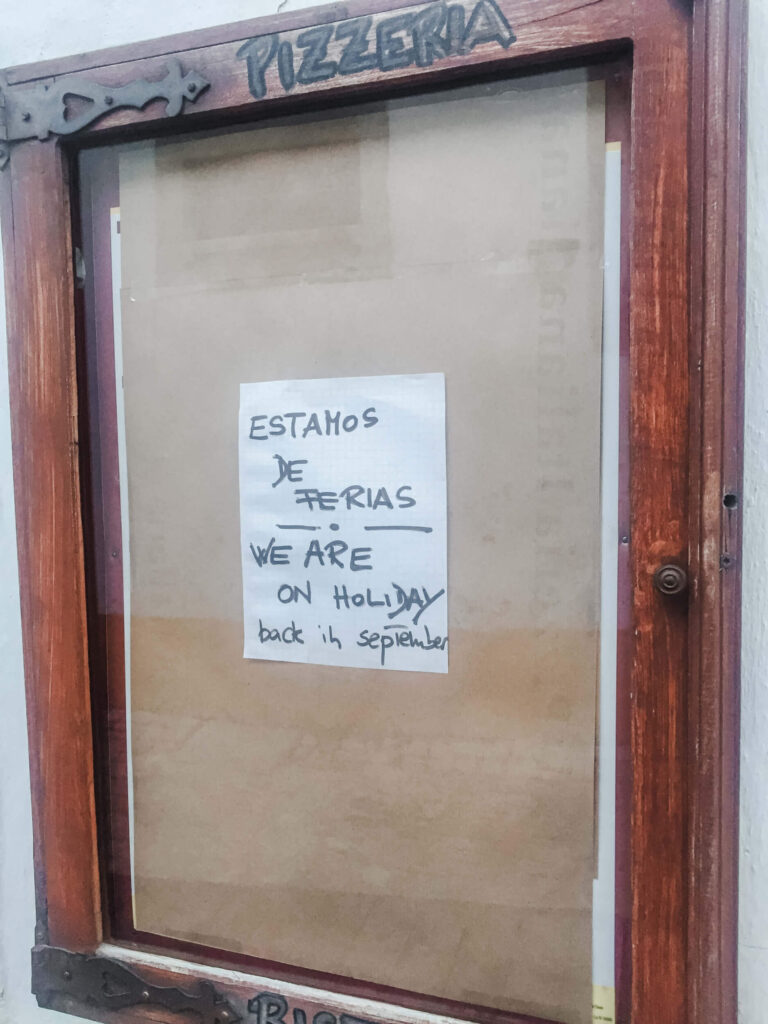 PIZZERIA
ESTAMOS
DE
FERIAS
WE ARE
ON HOLIDAY
back in september